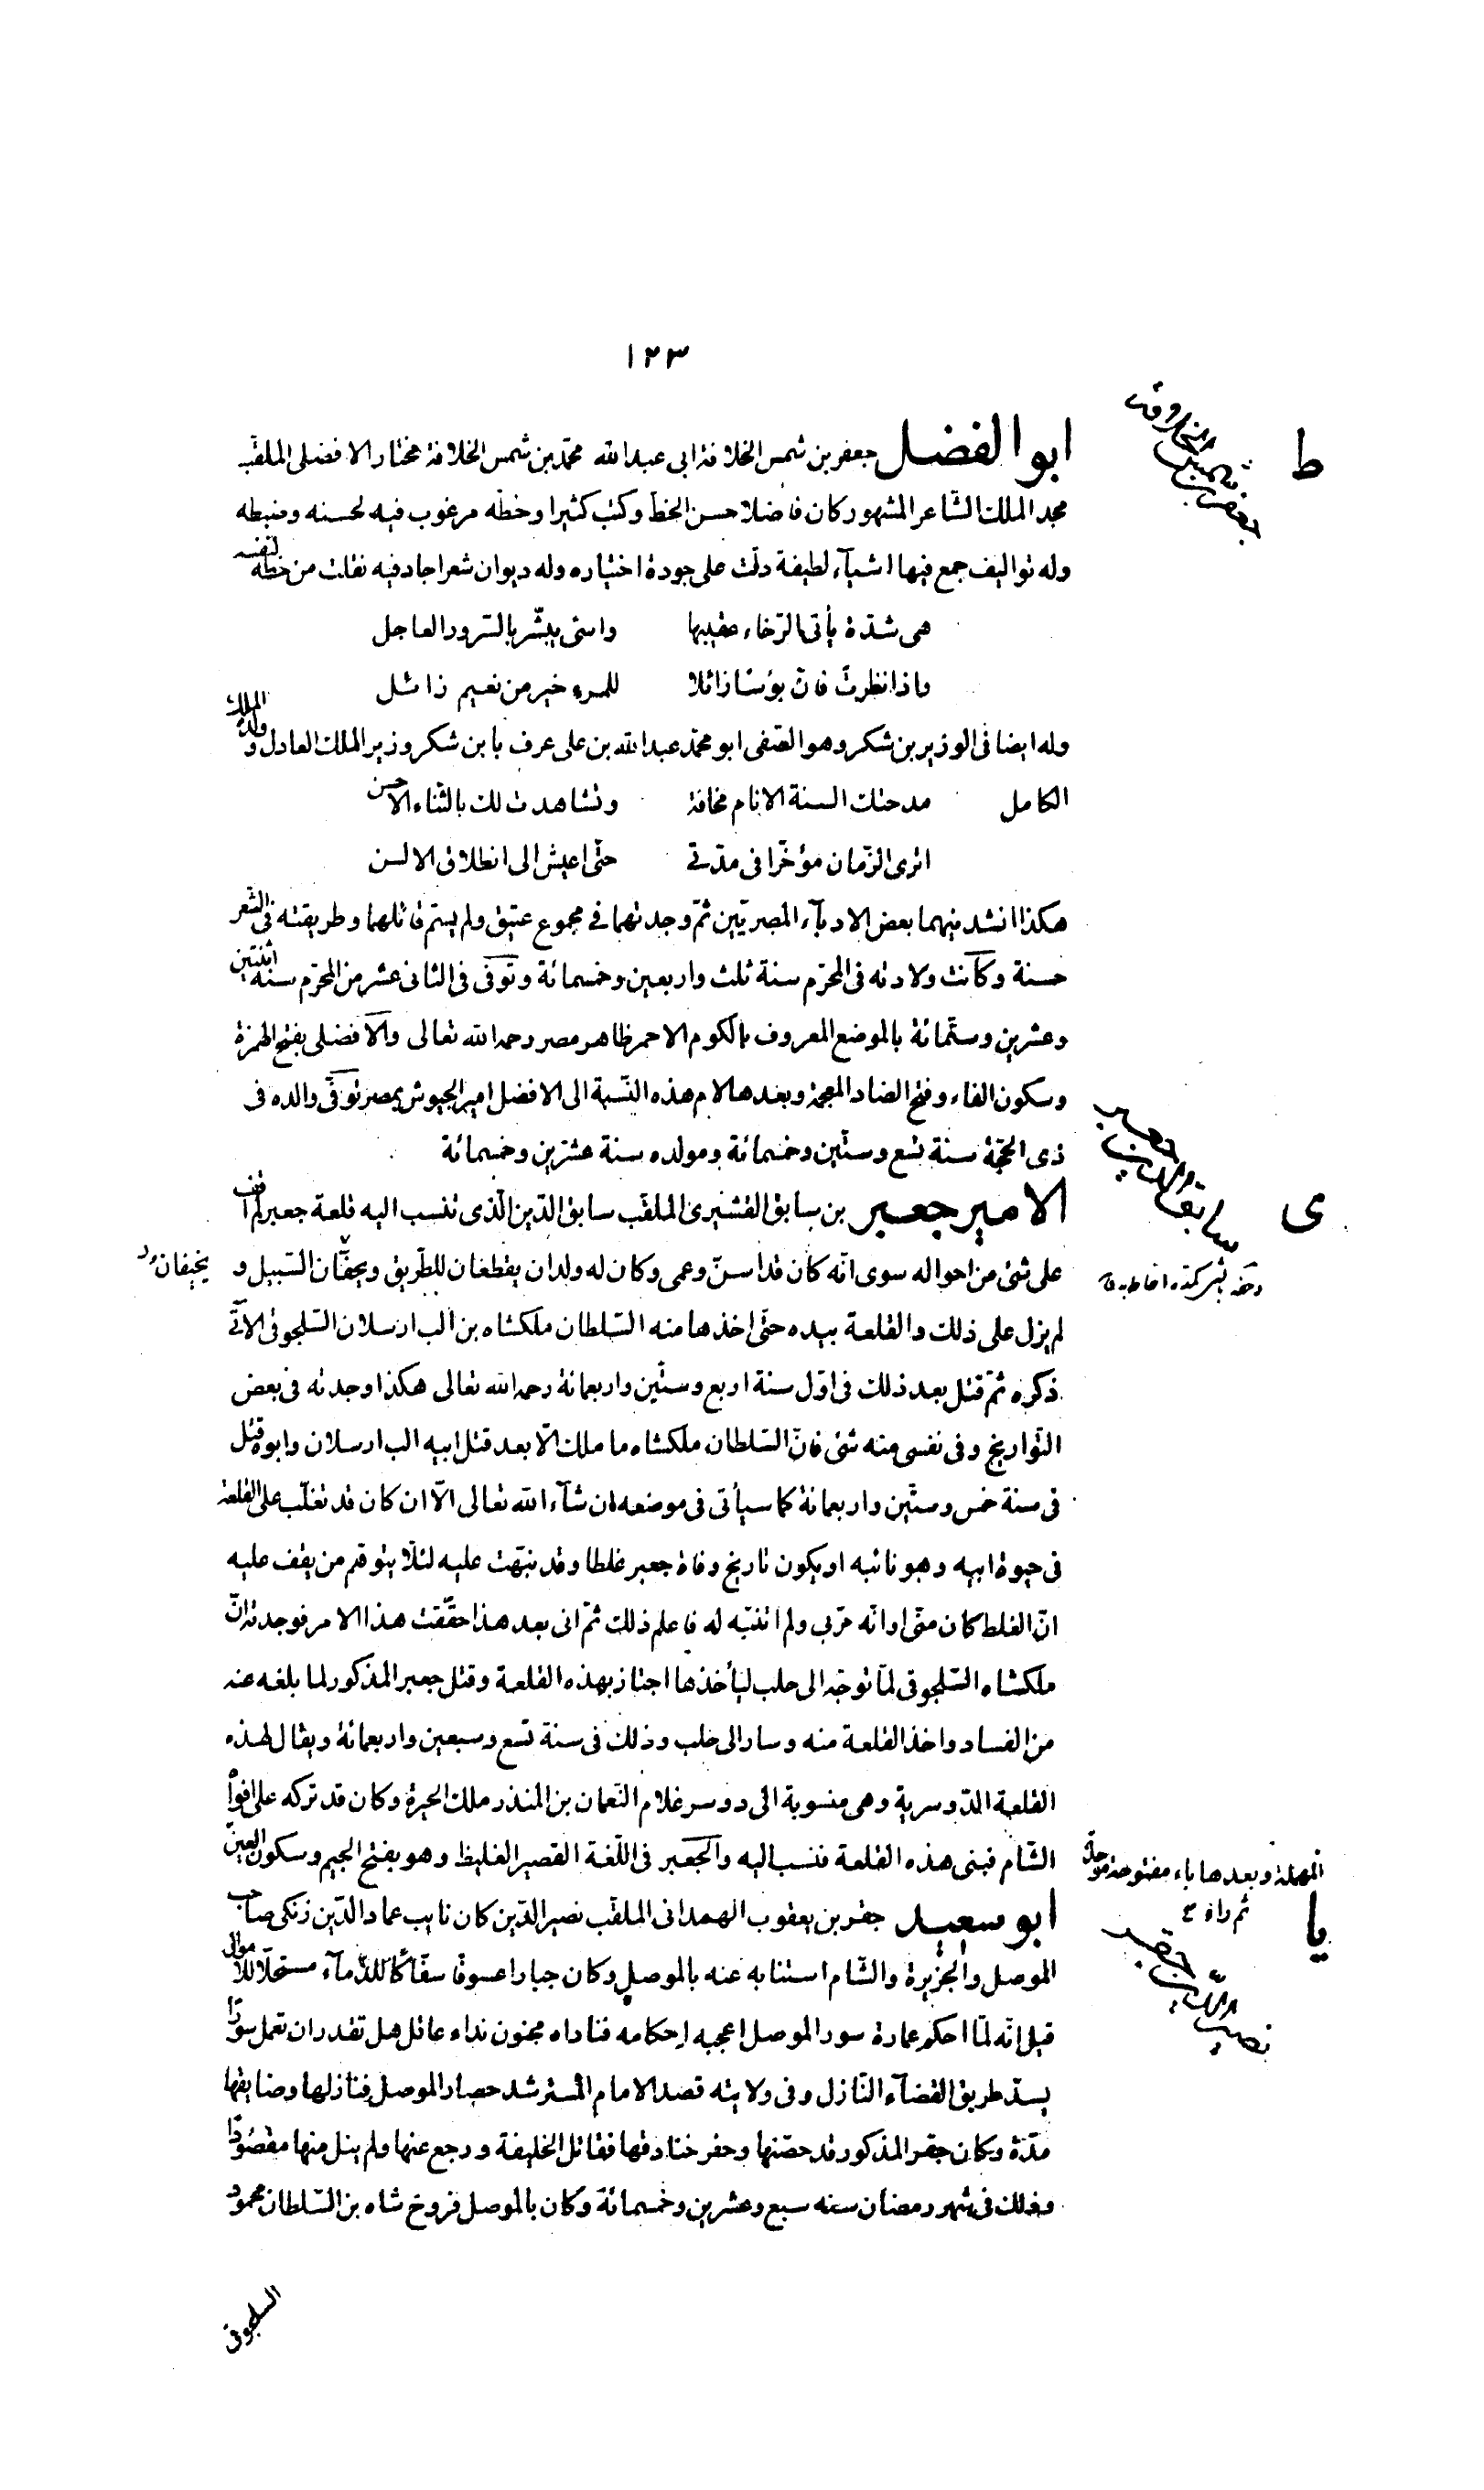 ١٢٣
ط
جعفر بن شمس الخلافة
ابو الفضل جعفر بن شمس الخلافة ابى عبد الله محمّد بن شمس الخلافة مختار الافضلى الملقّب
مجد الملك الشّاعر المشهور كان فاضلا حسن الخطّ وكتب كثيرا وخطّه مرغوب فيه لحسنه وضبطه
وله تواليف جمع فيها اشيآء لطيفة دلّت على جودة اختياره وله ديوان شعر اجاد فيه نقلت من خطّه لنفسه
هى شدّة يأتى الرّخاء عقيبها واسى يبشّر بالسّرور العاجل
واذا نظرت فانّ بؤسًا زائلا للمرء خير من نعيم زائل
وله ايضا فى الوزير بن شكر وهو الصّفى ابو محمّد عبد الله بن على عرف بابن شكر وزير الملك العادل وولده الملك
الكامل مدحتك السنة الانام مخافة وتشاهدت لك بالثّناء الاحسن
اترى الزّمان مؤخّرا فى مدّتى حتّى اعيش الى انطلاق الالسن
هكذا انشدنيهما بعض الادبآء المصريّين ثمّ وجدتهما فى مجموع عتيق ولم يسمّ قائلهما وطريقته فى الشّعر
حسنة وكانت ولادته فى المحرّم سنة ثلث واربعين وخمسمائة وتوفّى فى الثانى عشر من المحرّم سنة اثنتين
وعشرين وستّمائة بالموضع المعروف بالكوم الاحمر ظاهر مصر رحمه الله تعالى والافضلى بفتح الهمزة
وسكون الفاء وفتح الضاد المعجمة وبعدها لام هذه النّسبة الى الافضل امير الجيوش بمصر توفّى والده فى
ذى الحجّة سنة تسع وستّين وخمسمائة ومولده سنة عشرين وخمسمائة
ى
سابق الدين جعبر
الامير جعبر بن سابق القشيرى الملقّب سابق الدّين الّذى تنسب اليه قلعة جعبر لم اقف
على شئ من احواله سوى انّه كان قد اسنّ وعمى وكان له ولدان يقطعان للطّريق ويخيفان السّبيل و
يخيفان
لم يزل على ذلك والقلعة بيده حتّى اخذها منه السّلطان ملكشاه بن الب ارسلان السّلجوقى الآتى
ذكره ثمّ قتل بعد ذلك فى اوّل سنة اربع وستّين واربعمائة رحمه الله تعالى هكذا وجدته فى بعض
التّواريخ وفى نفسى منه شئ فانّ السّلطان ملكشاه ما ملك الّا بعد قتل ابيه الب ارسلان وابوه قتل
فى سنة خمس وستّين واربعمائة كما سيأتى فى موضعه ان شآء الله تعالى الّا ان كان قد تغلّب على القلعة
فى حيوة ابيه وهو نائبه او يكون تاريخ وفاة جعبر غلطا وقد نبّهت عليه لئلّا يتوهم من يقف عليه
انّ الغلط كان منّى او انّه مرّ بى ولم اتنبّه له فاعلم ذلك ثمّ انى بعد هذا حقّقت هذا الامر فوجدته انّ
ملكشاه السّلجوقى لمّا توجّه الى حلب ليأخذها اجتاز بهذه القلعة وقتل جعبر المذكور لما بلغه عنه
من الفساد واخذ القلعة منه وسار الى حلب وذلك فى سنة تسع وسبعين واربعمائة ويقال لهذه
القلعة الدّوسرية وهى منسوبة الى دوسر غلام النّعمان بن المنذر ملك الحيرة وكان قد تركه على افواه
الشّام فبنى هذه القلعة فنسب اليه والجعبر فى اللّغة القصير الغليظ وهو بفتح الجيم وسكون العين
المهملة وبعدها باء مفتوحة موحّدة
ثم راء
يا
نصير الدين جقر
ابو سعيد جقر بن يعقوب الهمدانى الملقّب نصير الدّين كان نايب عماد الدّين زنكى صاحب
الموصل والجزيرة والشّام استنابه عنه بالموصل وكان جبارا عسوفًا سفّاكًا للدّمآء مستحلّا للاموال
قيل انّه لمّا احكم عمارة سور الموصل اعجبه احكامه فناداه مجنون نداء عاقل هل تقدر ان تعمل سورًا
يسدّ طريق القضآء النّازل وفى ولايته قصد الامام المسترشد حصار الموصل فنازلها وضايقها
مدّة وكان جقر المذكور قد حصّنها وحفر خنادقها فقاتل الخليفة ورجع عنها ولم ينل منها مقصودًا
وذلك فى شهر رمضان سنه سبع وعشرين وخمسمائة وكان بالموصل فروخ شاه بن السّلطان محمود
السلجوقى